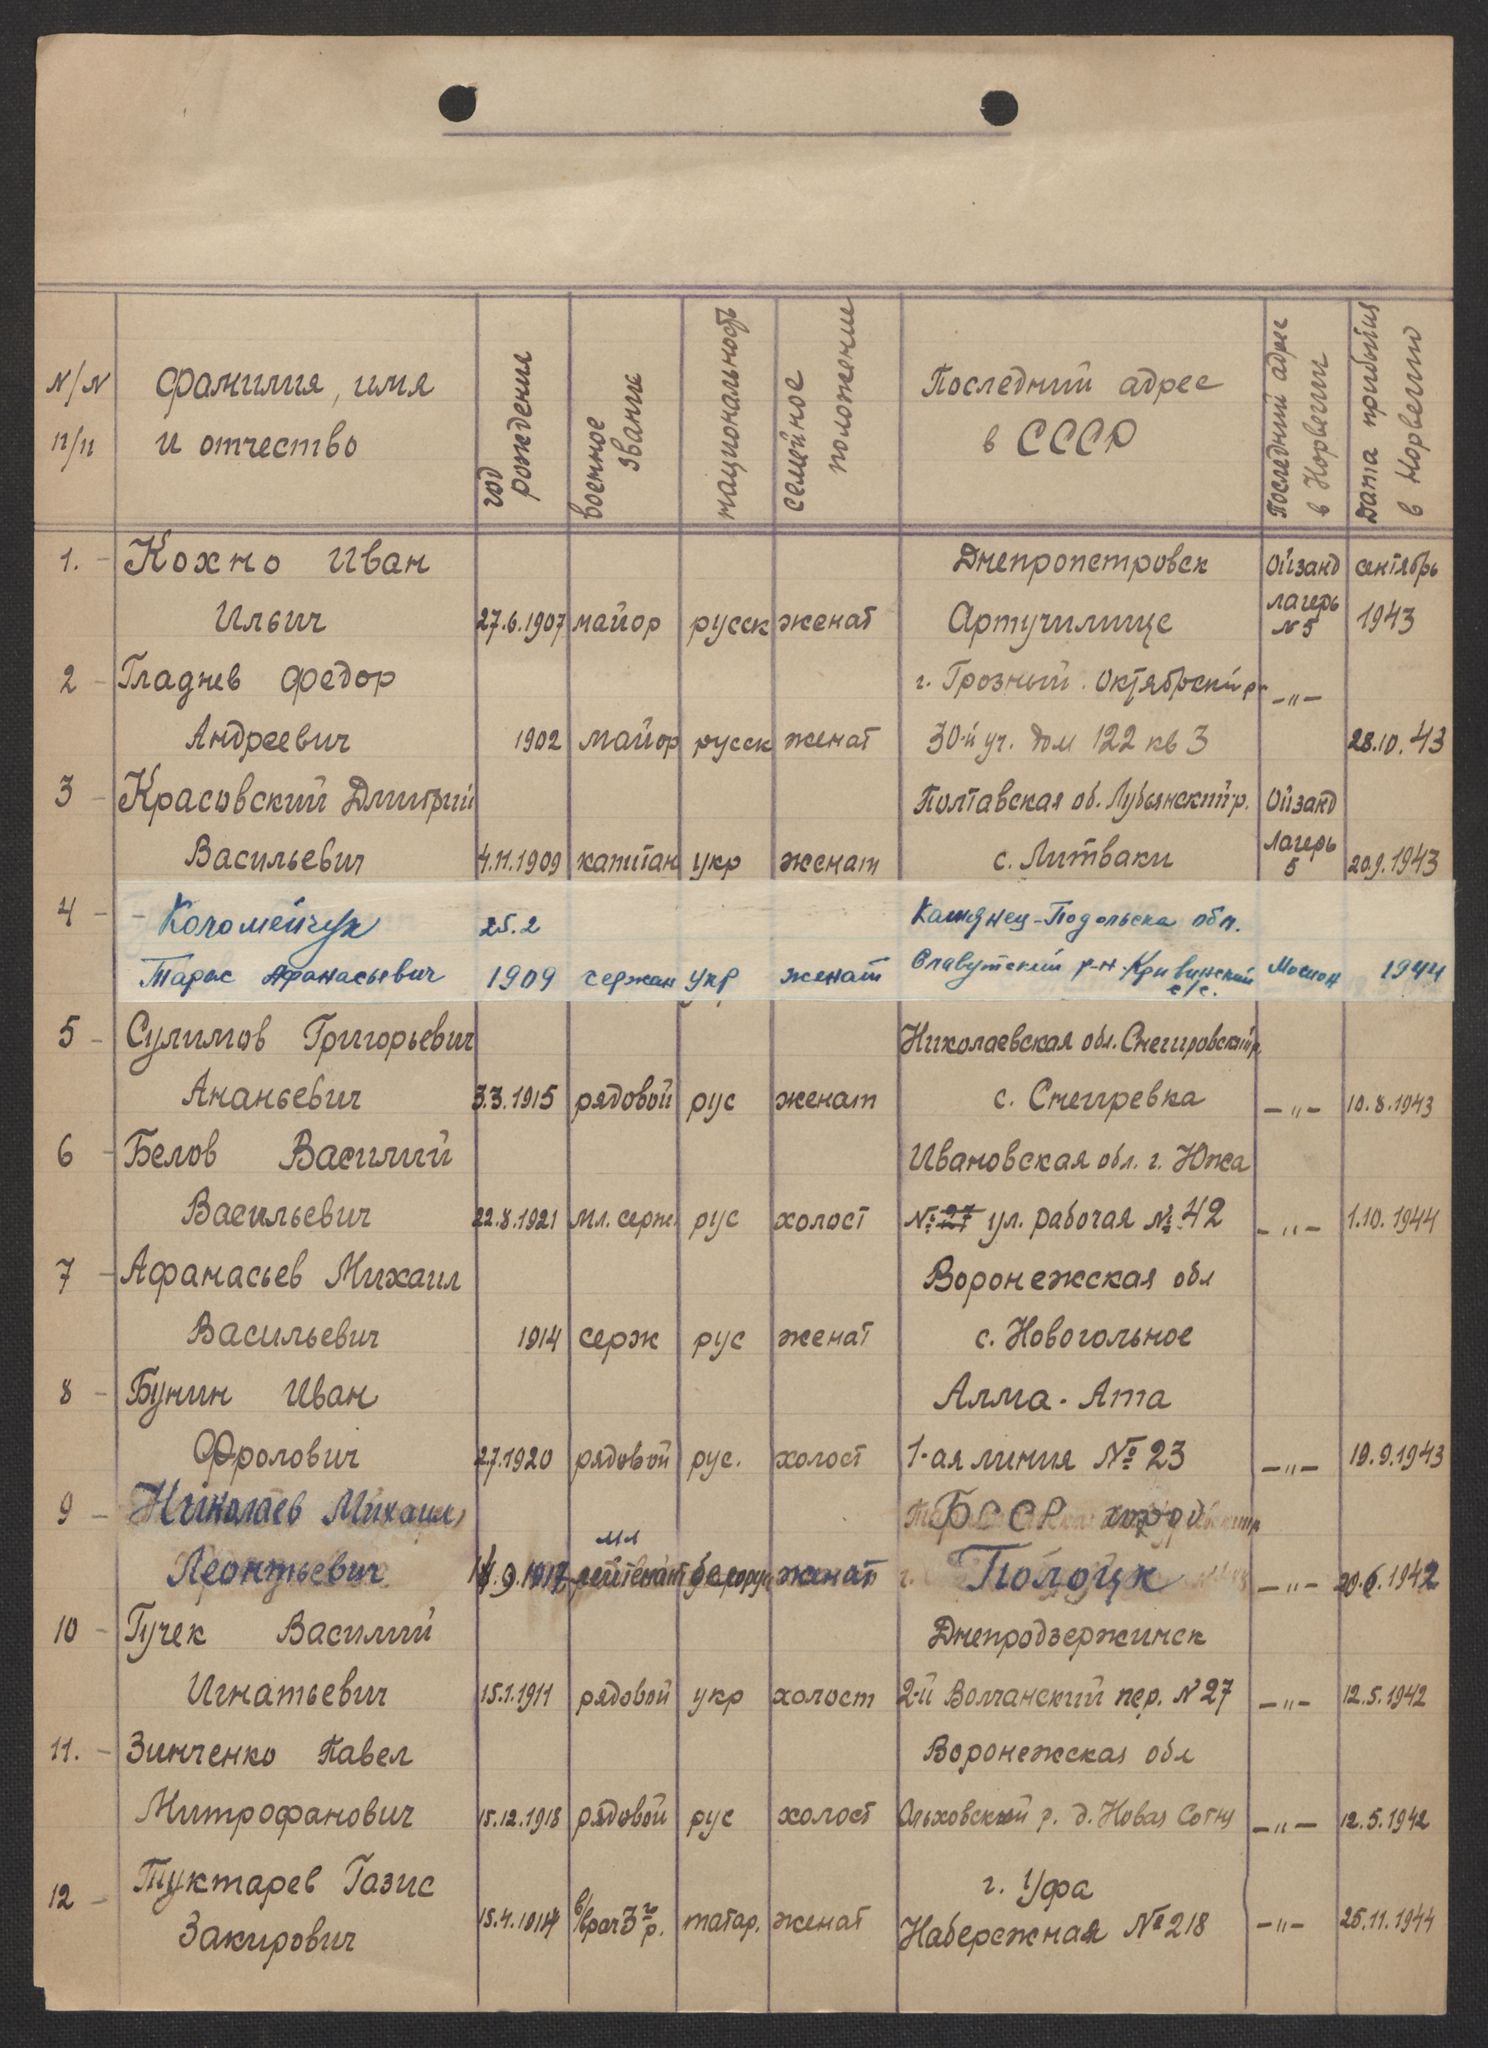 N/N п/п
фамилия, имя и отчество
год рождения
военное звание
национальность
семейное положение
Последний адрес в СССР
Последний адрес в Норвегии
Дата прибытия в Норвегии
1. - Кохно Иван Днепропетровск Ойзанд сентябрь
Ильич 27.6.1907 майор русск женат Артучилище лагерь N 5 1943
2 - Гладнев Федор г. Грозный. Октябрьский р. -"-
Андреевич 1902 майор русск женат 30-й уч. дом 122 кв 3 28.10.43
3 - Красовский Дмитрий Полтавская об. Лубянский р. Ойзанд
Васильевич 4.11.1909 капитан укр женат с. Литваки Лагерь 5 20.9.1943
4 - Коломейчук 25.2 Каменец-Подольска обл.
Тарас Афанасьевич 1909 сержан укр женат Славутский р-н Кривинский с/с. Мосион 1944
5 - Сулимов Григорьевич Николаевская обл. Снегировский р
Ананьевич 3.3.1915 рядовой рус женат с. Снегиревка -"- 10.8.1943
6 - Белов Василий Ивановская обл. г. Южа
Васильевич 22.8.1921 мл. серж. рус холост № 27 ул. рабочая № 42 -"- 1.10.1944
7 - Афанасьев Михаил Воронежская обл
Васильевич 1914 серж рус женат с. Новогольное
8 - Бунин Иван Алма-Ата
Фролович 27.1920 рядовой рус. холост 1-ая линия № 23 -"- 19.9.1943
9 - Николаев Михаил БССР
Леонтьевич мл лейтенант белорус женат г. Полоцк -"- 20.6.1942
10 - Гучек Василий Днепродзержинск
Игнатьевич 15.1.1911 рядовой укр холост 2-й Волчанский пер. N 27 -"- 12.5.1942
11. - Зинченко Павел Воронежская обл
Митрофанович 15.12.1918 рядовой рус холост Ольховский р. д. Новая Сотня -"- 12.5.1942
12 - Туктарев Газис г. Уфа
Закирович 15.4.1914 в/врач 3 го р. татар. женат Набережная № 218 -"- 25.11.1944